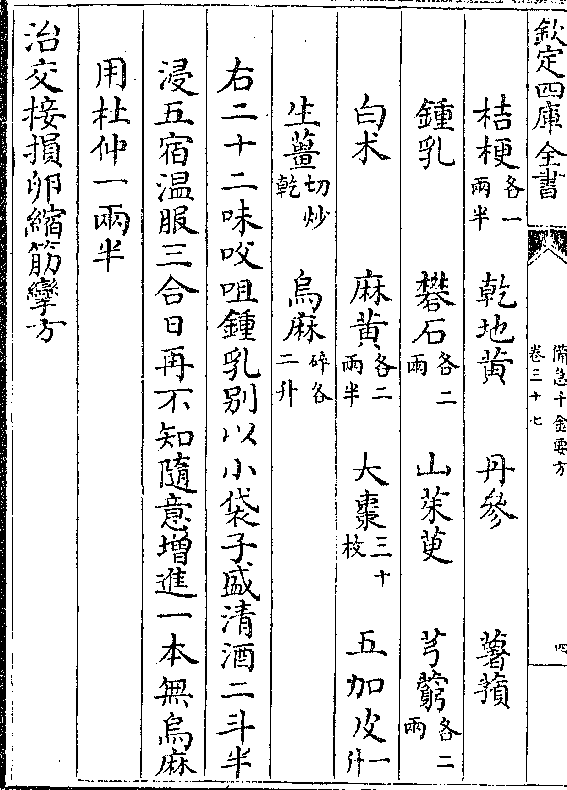 欽定四庫全書
備急千金要方
卷三十七
四
桔梗各一兩半 乾地黃 丹參 薯蕷
鍾乳 礬石各二兩 山茱萸 芎藭各二兩
白朮 麻黃各二兩半 大棗三十枚 五加皮一升
生薑切炒乾 烏麻碎各二升
右二十二味㕮咀鍾乳别以小袋子盛清酒二斗半
浸五宿温服三合日再不知隨意增進一本無烏麻
用杜仲一兩半
治交接損卵縮筋攣方